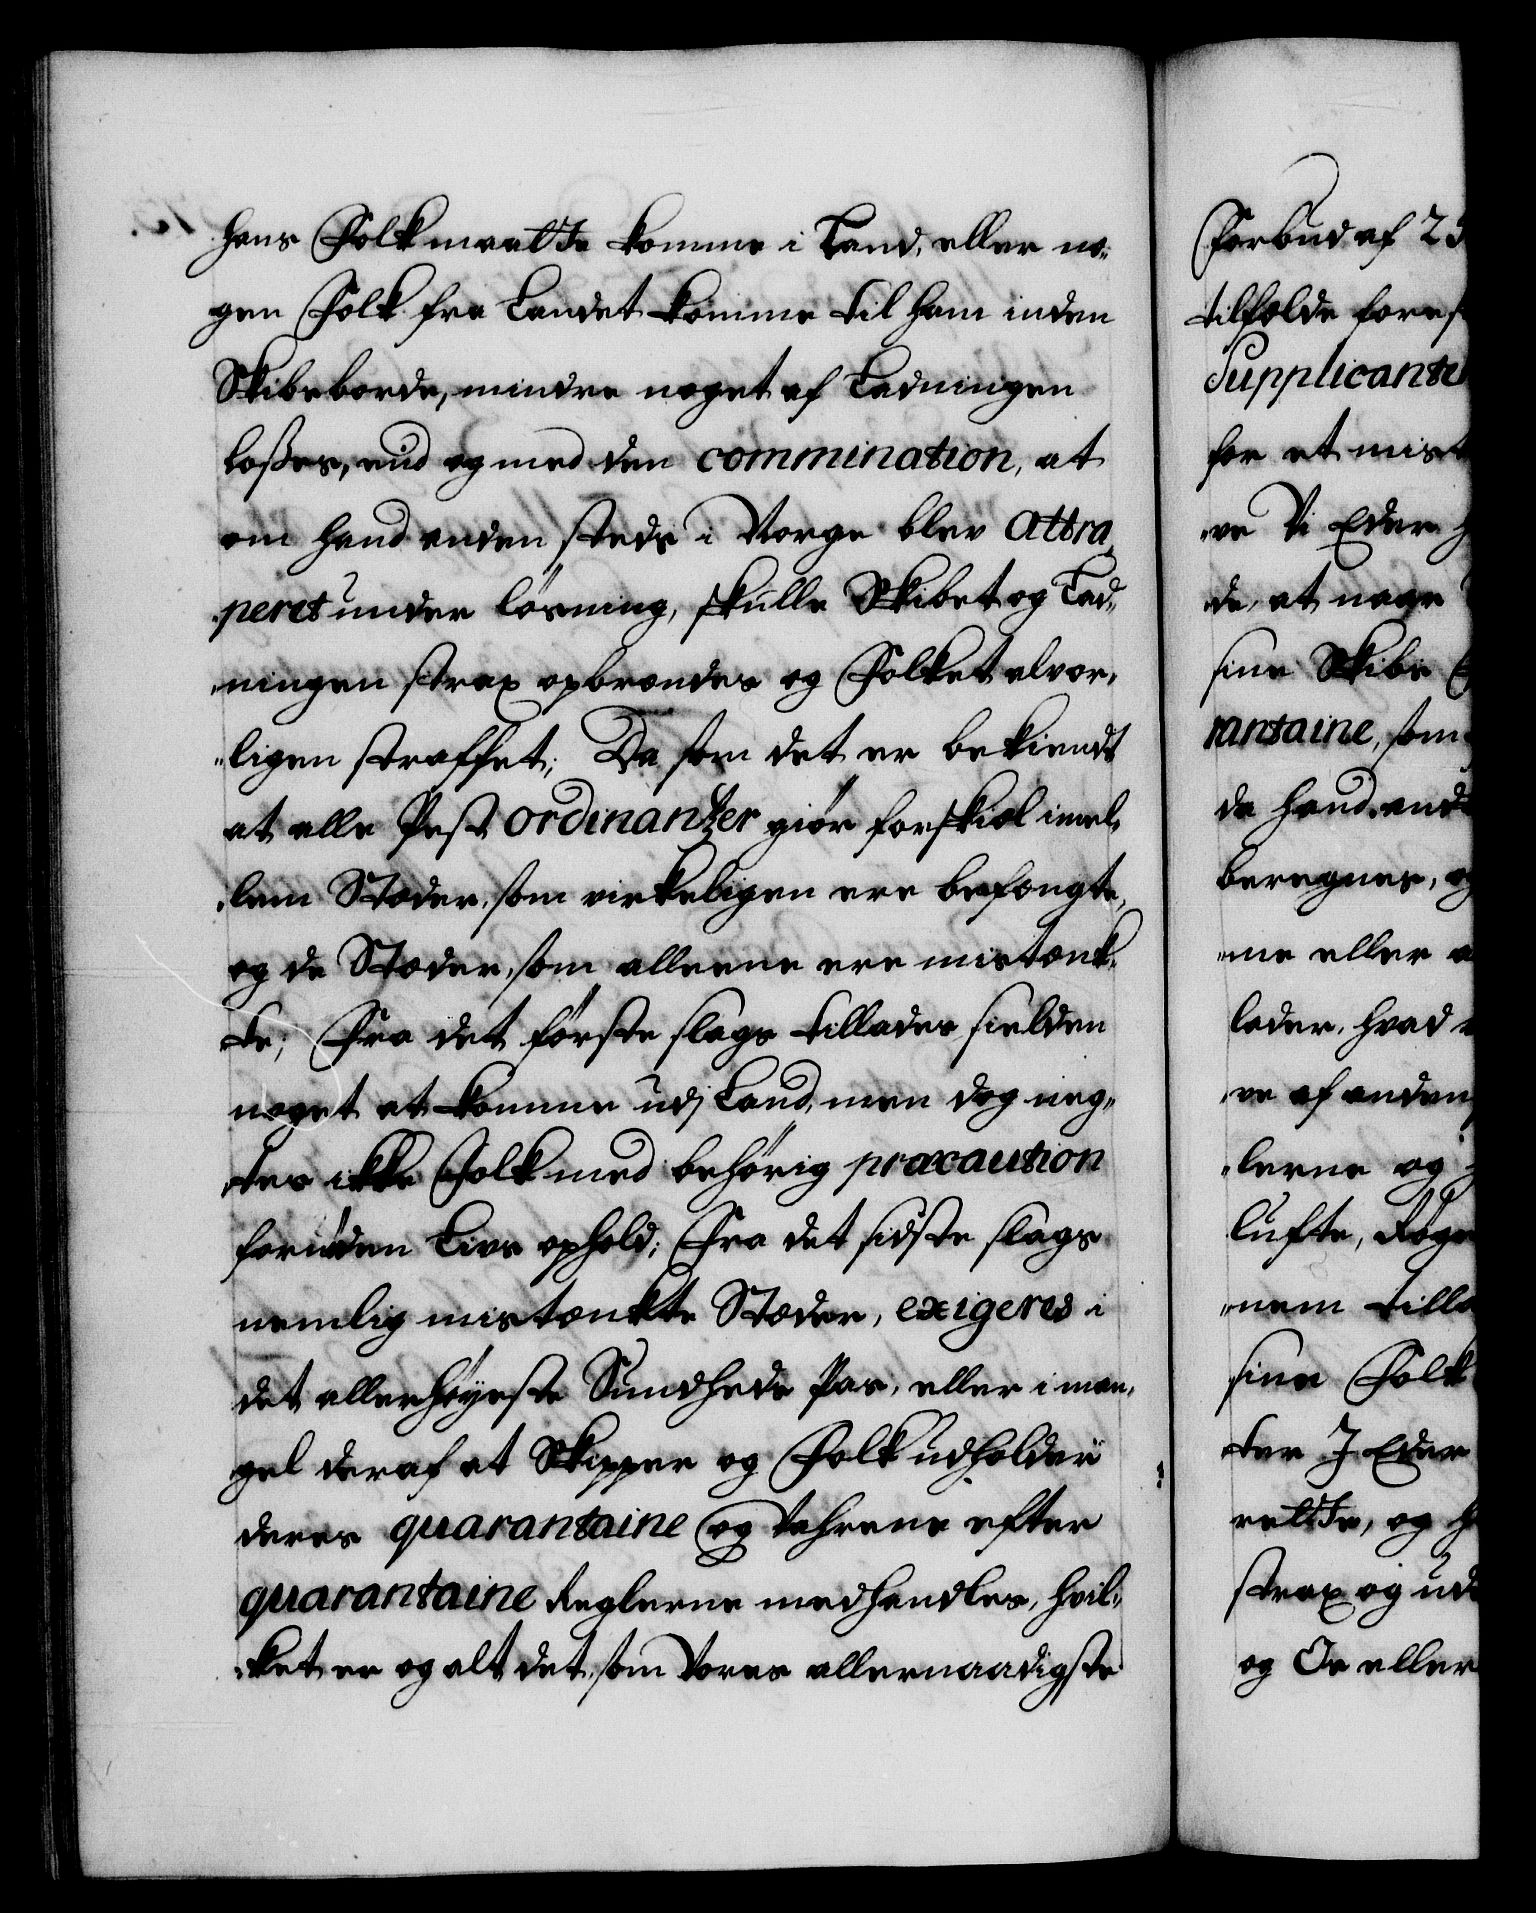 hans Folk maatte komme i Land, eller no-
gen Folk fra Landet komme til ham inden
Skibsborde, mindre noget af Ladningen
losses, end og med den commination, at
om hand anden steds i Norge blev attra-
peret under lösning, skulle Skibet og Lad-
ningen strax opbrændes og Folket alvor-
ligen straffet; Da som det er bekiendt
at alle Pest ordinantzer giör forskiæl imel-
lem Stæder, som virkeligen ere befængte,
og de Stæder, som alleene ere mistænk-
te; Fra det förste slags tillades sielden
noget at komme udj Land, men dog neg-
tes ikke Folk med behörig præcaution
foruden Livs ophold; Fra det sidste slags
nemlig mistænkte Stæder, exigeres i
det allerhöyeste Sundheds Pas, eller i man-
gel deraf at Skipper og Folk udholder
deres quarantaine og Vahrene efter
quarantaine Reglerne medhandles, hvil-
ket er og alt det, som Vores allernaadigste
Forbud af 23
tilfælde fores
Supplicante
for et mist
ve Vi Eder h
de, at naar
sine Skibe
rantaine, som
da hand end
beregnes, og
me eller a
lader, hvad
ve af anden
lerne og
lufte, Röge
nem tilla
sine Folk
ter I Eder
rette, og h
strax og ud
og Öe eller